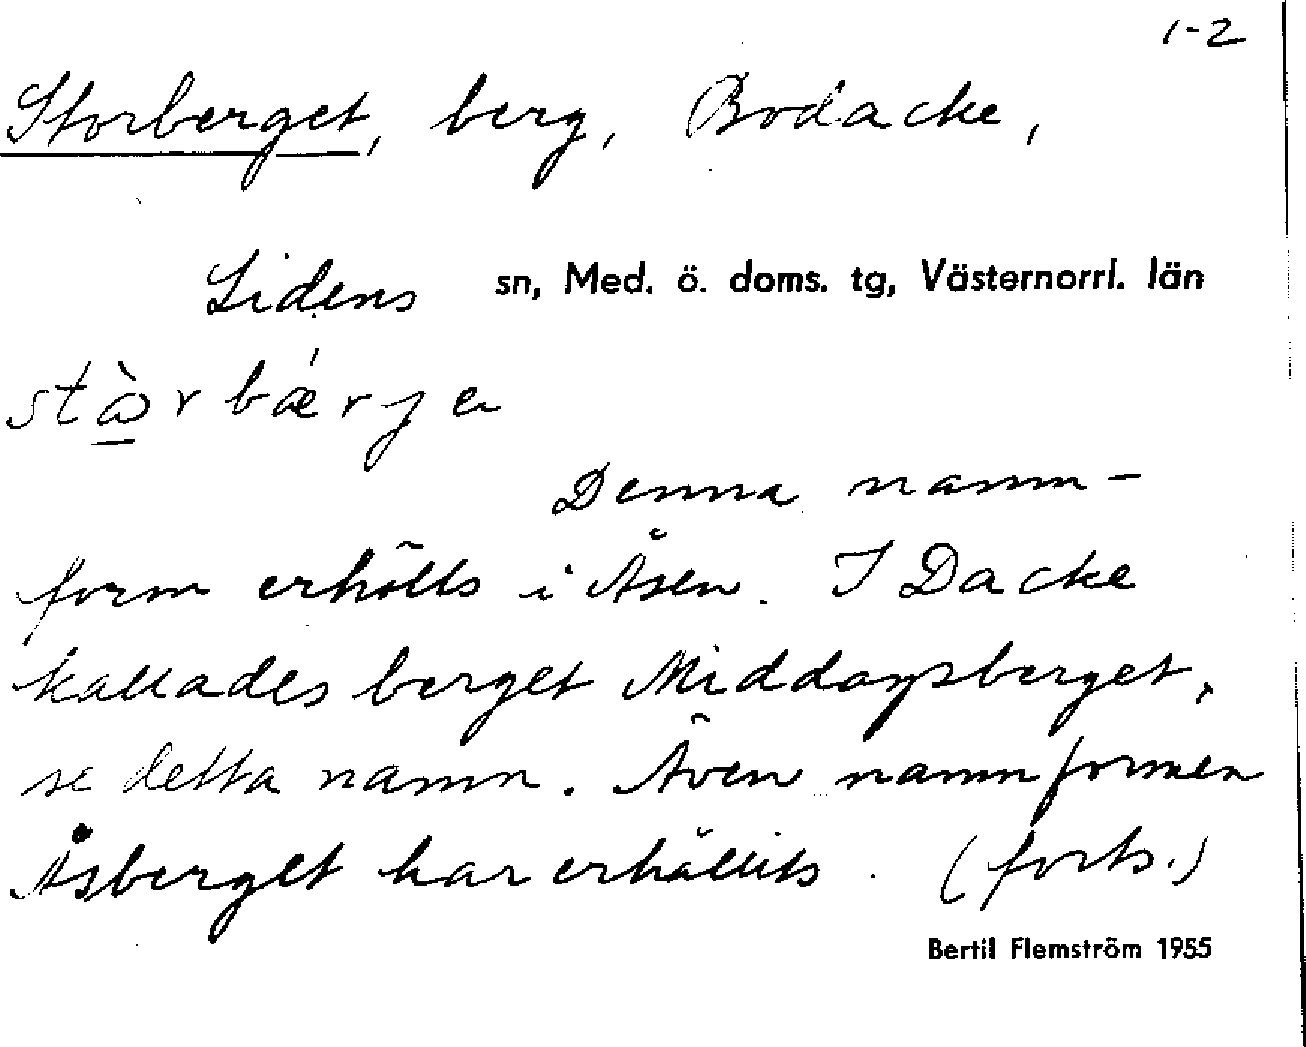 1-2
Storberget, berg, Bodacke,
Lidens sn, Med. ö. doms. tg, Västernorrl. län
stò̲rbǽrjen
Denna namn-
form erhölls i Åsen. I Dacke
kallades berget Middagsberget,
se detta namn. Även namnformen
Åsberget har erhållits. (forts.)
Bertil Flemström 1955